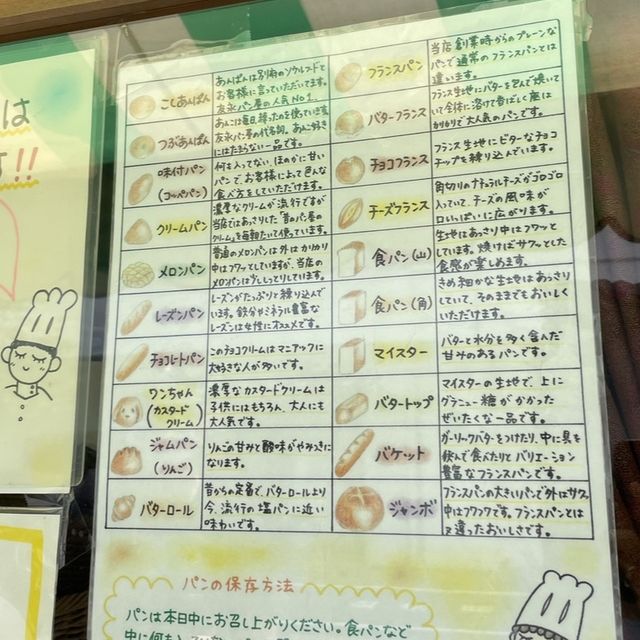 は
!!
こしあんぱん
あんぱんは別府のソウルフードと
お客様に言っていただいてます。
友永パン屋の人気NO1。
つぶあんぱん
あんこは毎日練ったのを使っています
友永パン屋の代名詞。あんこ好き
にはたまらない一品です。
味付パン
(コッペパン)
何も入ってない、ほのかに甘い
パンで、お客様によって色んな
食べ方をしていただけます。
クリームパン
濃厚なクリームが流行ですが
当店ではあっさりした「昔のパン屋の
クリーム」を毎朝たいて使っています。
メロンパン
普通のメロンパンは外はカリカリ
中はフワッとしていますが、当店の
メロンパンはしっとりしています。
レーズンパン
レーズンがたっぷりと練り込んで
います。鉄分やミネラル豊富な
レーズンは女性にオススメです。
チョコレートパン
このチョコクリームはマニアックに
大好きな人が多いです。
ワンちゃん
(カスタード
クリーム)
濃厚なカスタードクリームは
子供にはもちろん、大人にも
大人気です。
ジャムパン
(りんご)
りんごの甘みと酸味がやみつきに
なります。
バターロール
昔からの定番で、バターロールより
今、流行の塩パンに近い
味わいです。
フランスパン
当店創業時からのプレーンな
パンで通常のフランスパンとは
違います。
バターフランス
フランス生地にバターを包んで焼いて
いて全体に溶けて香ばしく底は
カリカリで大人気のパンです。
チョコフランス
フランス生地にビターなチョコ
チップを練り込んでいます。
チーズフランス
角切りのナチュラルチーズがゴロゴロ
入っていて、チーズの風味が
口いっぱいに広がります。
食パン(山)
生地はあっさり中はフワッと
しています。焼けばサクッとした
食感が楽しめます。
食パン(角)
きめ細かな生地はあっさり
していて、そのままでもおいしく
いただけます。
マイスター
バターと水分を多く含んだ
甘みのあるパンです。
バタートップ
マイスターの生地で、上に
グラニュー糖がかかった
ぜいたくな一品です。
バケット
ガーリックバターをつけたり、中に具を
挟んで食べたりとバリエーション
豊富なフランスパンです。
ジャンボ
フランスパンの大きいパンで外はサクッ
中はフワフワです。フランスパンとは
又違ったおいしさです。
パンの保存方法
パンは本日中にお召し上がりください。食パンなど
中に何も